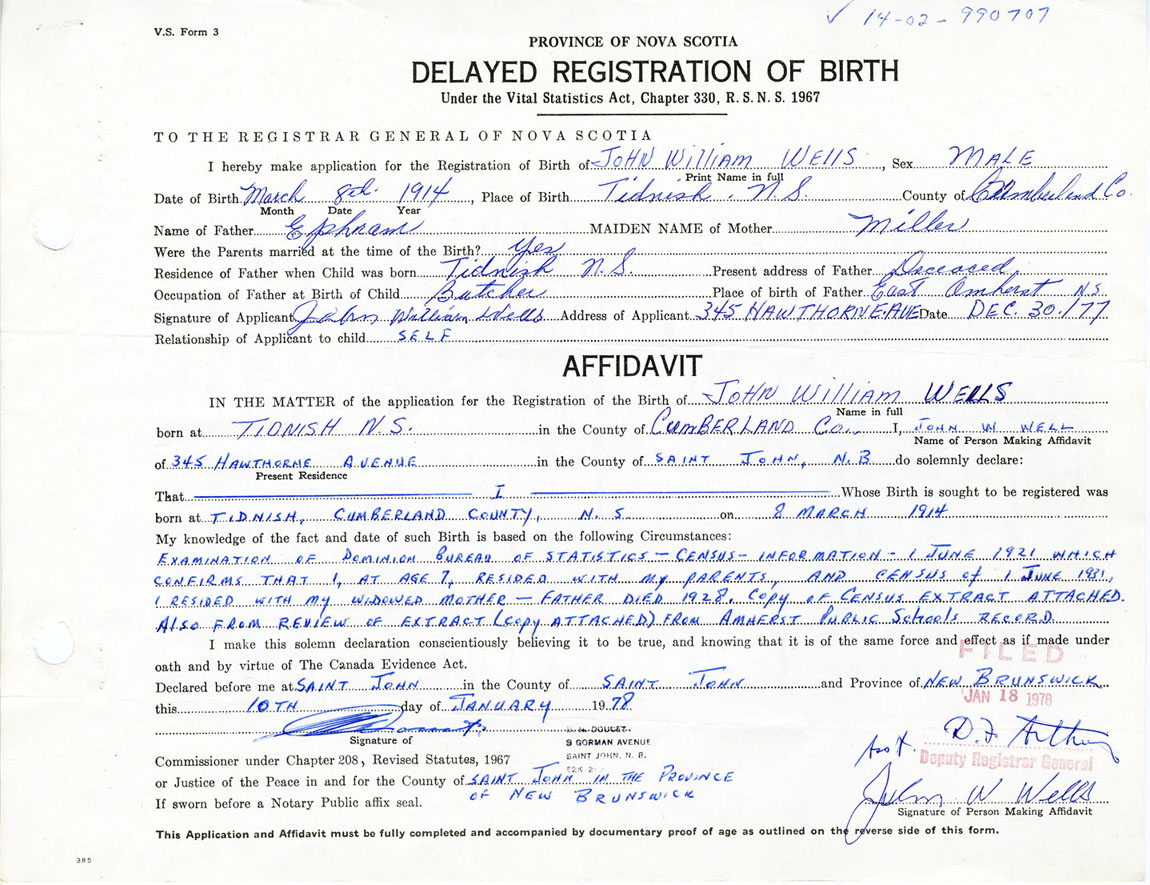 ✓ 14-02-990707
V.S. Form 3
PROVINCE OF NOVA SCOTIA
DELAYED REGISTRATION OF BIRTH
Under the Vital Statistics Act, Chapter 330, R.S.N.S. 1967
TO THE REGISTRAR GENERAL OF NOVA SCOTIA
I hereby make application for the Registration of Birth of JOHN WILLIAM WELLS, Sex MALE
Print Name in full
Date of Birth March 8th 1914, Place of Birth Tidnish. N.S. County of Cumberland Co.
Month Date Year
Name of Father Ephram MAIDEN NAME of Mother Miller
Were the Parents married at the time of the Birth? Yes
Residence of Father when Child was born Tidnish N.S. Present address of Father Deceased
Occupation of Father at Birth of Child Butcher Place of birth of Father East Amherst N.S.
Signature of Applicant John William Wells Address of Applicant 345 HAWTHORNE AVE Date DEC. 30/77
Relationship of Applicant to child SELF
AFFIDAVIT
IN THE MATTER of the application for the Registration of the Birth of JOHN WILLIAM WELLS
Name in full
born at TIDNISH N.S. in the County of CUMBERLAND CO. I, JOHN W WELL
Name of Person Making Affidavit
of 345 HAWTHORNE AVENUE in the County of SAINT JOHN, N.B do solemnly declare:
Present Residence
That I Whose Birth is sought to be registered was
born at TIDNISH, CUMBERLAND COUNTY, N.S on 8 MARCH 1914
My knowledge of the fact and date of such Birth is based on the following Circumstances:
EXAMINATION OF DOMINION BUREAU OF STATISTICS - CENSUS - INFORMATION - 1 JUNE 1921 WHICH
CONFIRMS THAT I, AT AGE 7, RESIDED WITH MY PARENTS, AND CENSUS of 1 JUNE 1931,
I RESIDED WITH MY WIDOWED MOTHER - FATHER DIED 1928. COPY OF CENSUS EXTRACT ATTACHED.
ALSO FROM REVIEW OF EXTRACT (COPY ATTACHED) FROM AMHERST PUBLIC SCHOOLS RECORD.
I make this solemn declaration conscientiously believing it to be true, and knowing that it is of the same force and effect as if made under
oath and by virtue of The Canada Evidence Act.
FILED
Declared before me at SAINT JOHN in the County of SAINT JOHN and Province of NEW BRUNSWICK
JAN 18 1978
this 10TH day of JANUARY 1978
Signature of
DOUCET
9 GORMAN AVENUE
SAINT JOHN, N. B.
E2K
Ass't. D.F. Arthur
Deputy Registrar General
Commissioner under Chapter 208, Revised Statutes, 1967
or Justice of the Peace in and for the County of SAINT JOHN IN THE PROVINCE
OF NEW BRUNSWICK
If sworn before a Notary Public affix seal.
John W Wells
Signature of Person Making Affidavit
This Application and Affidavit must be fully completed and accompanied by documentary proof of age as outlined on the reverse side of this form.
385